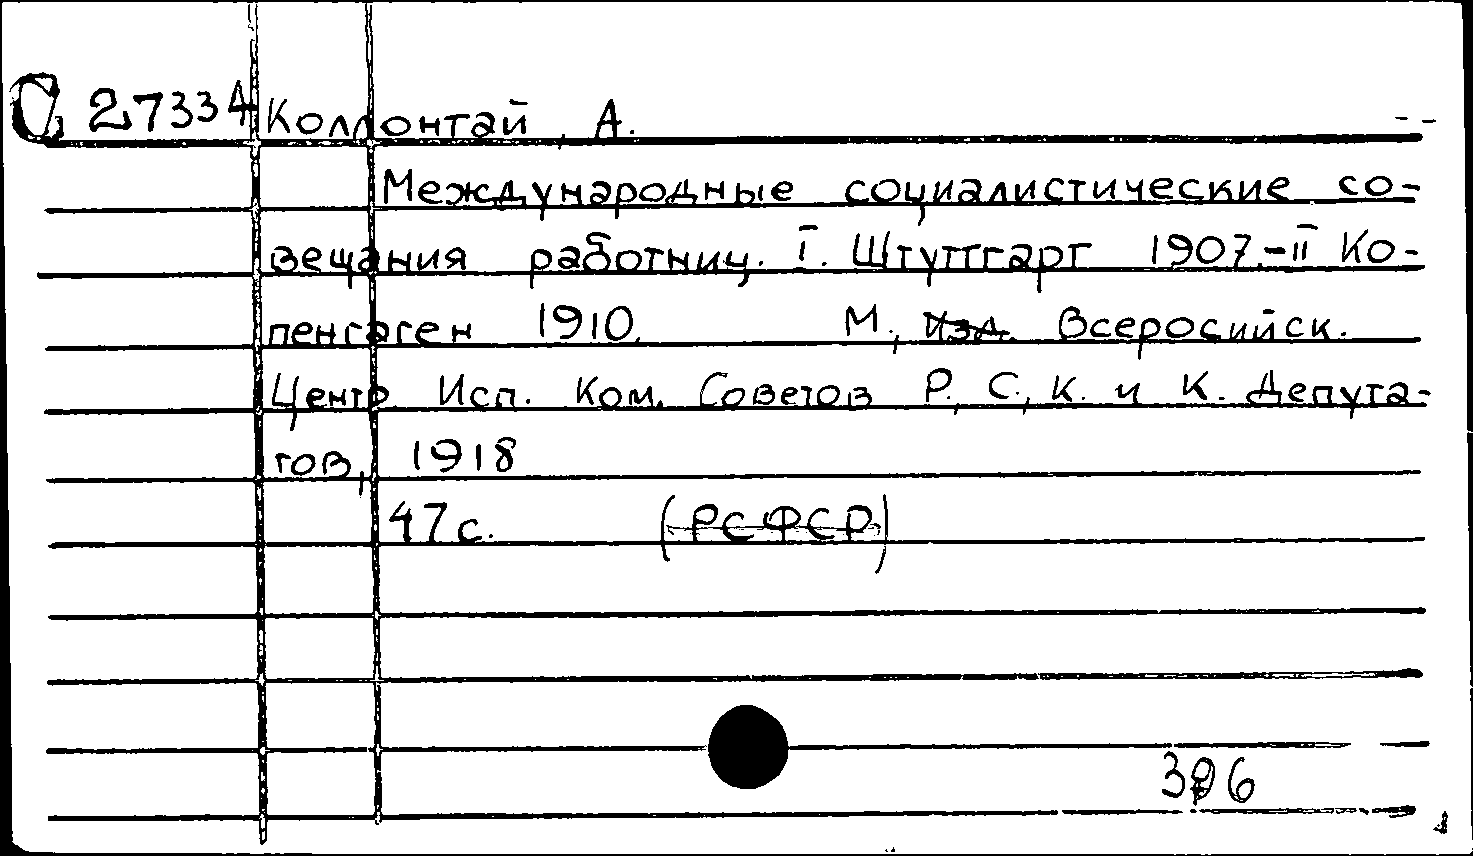 С 27334 Коллонтай, А.
Международные социалистические со-
вещания работниц. I. Штуттгарт 1907.-II Ко-
пенгаген 1910. М., Изд. Всеросийск.
Центр. Исп. Ком. Советов Р., С., К. и К. Депута-
тов, 1918
47 с. (РСФСР)